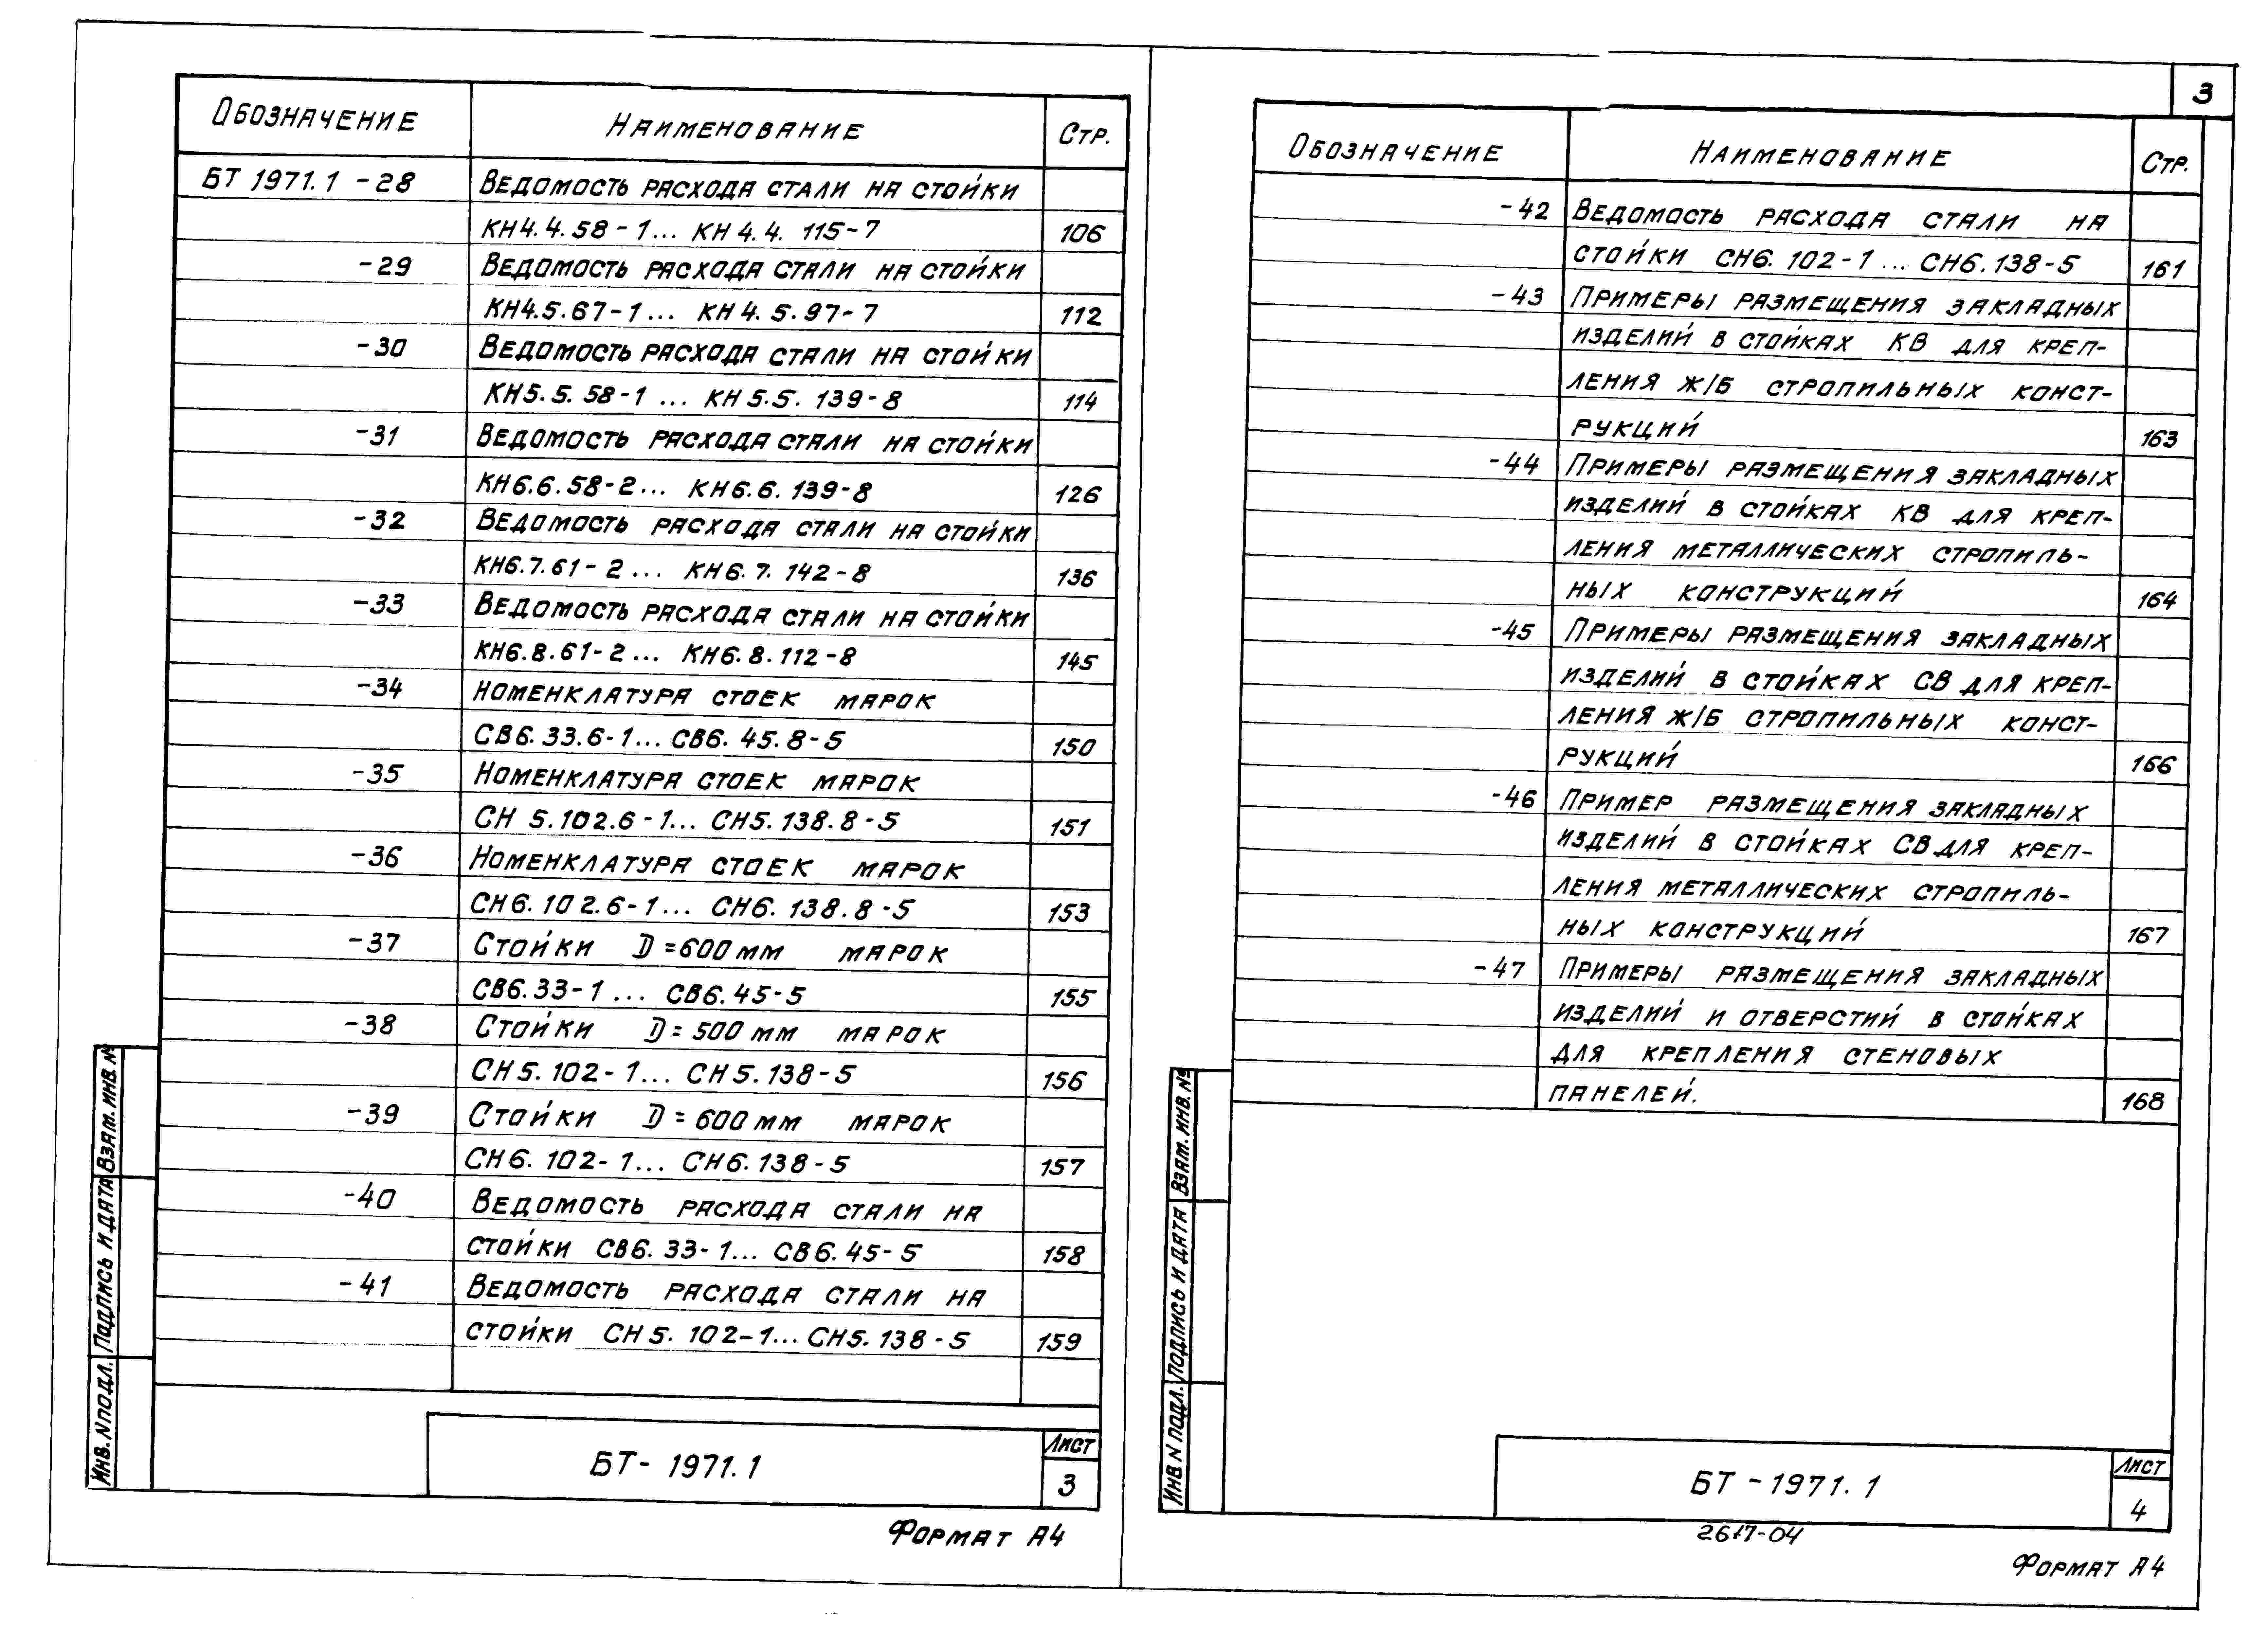 Обозначение Наименование Стр.
БТ 1971.1 -28 Ведомость расхода стали на стойки
КН4.4.58-1... КН4.4.115-7 106
-29 Ведомость расхода стали на стойки
КН4.5.67-1... КН4.5.97-7 112
-30 Ведомость расхода стали на стойки
КН5.5.58-1... КН5.5.139-8 114
-31 Ведомость расхода стали на стойки
КН6.6.58-2... КН6.6.139-8 126
-32 Ведомость расхода стали на стойки
КН6.7.61-2... КН6.7.142-8 136
-33 Ведомость расхода стали на стойки
КН6.8.61-2... КН6.8.112-8 145
-34 Номенклатура стоек марок
СВ6.33.6-1... СВ6.45.8-5 150
-35 Номенклатура стоек марок
СН 5.102.6-1... СН5.138.8-5 151
-36 Номенклатура стоек марок
СН6.102.6-1... СН6.138.8-5 153
-37 Стойки D=600мм марок
СВ6.33-1... СВ6.45-5 155
-38 Стойки D=500мм марок
СН5.102-1... СН5.138-5 156
-39 Стойки D=600мм марок
СН6.102-1... СН6.138-5 157
-40 Ведомость расхода стали на
стойки СВ6.33-1... СВ6.45-5 158
-41 Ведомость расхода стали на
стойки СН5.102-1... СН5.138-5 159
Инв. № подл. Подпись и дата Взам. инв. №
БТ- 1971.1 Лист
3
Формат А4
3
Обозначение Наименование Стр.
-42 Ведомость расхода стали на
стойки СН6.102-1... СН6.138-5 161
-43 Примеры размещения закладных
изделий в стойках КВ для креп-
ления ж/б стропильных конст-
рукций 163
-44 Примеры размещения закладных
изделий в стойках КВ для креп-
ления металлических стропиль-
ных конструкций 164
-45 Примеры размещения закладных
изделий в стойках СВ для креп-
ления ж/б стропильных конст-
рукций 166
-46 Пример размещения закладных
изделий в стойках СВ для креп-
ления металлических стропиль-
ных конструкций 167
-47 Примеры размещения закладных
изделий и отверстий в стойках
для крепления стеновых
панелей. 168
Инв N подл. Подпись и дата Взам. инв. №
БТ -1971.1 Лист
4
2617-04
Формат А4